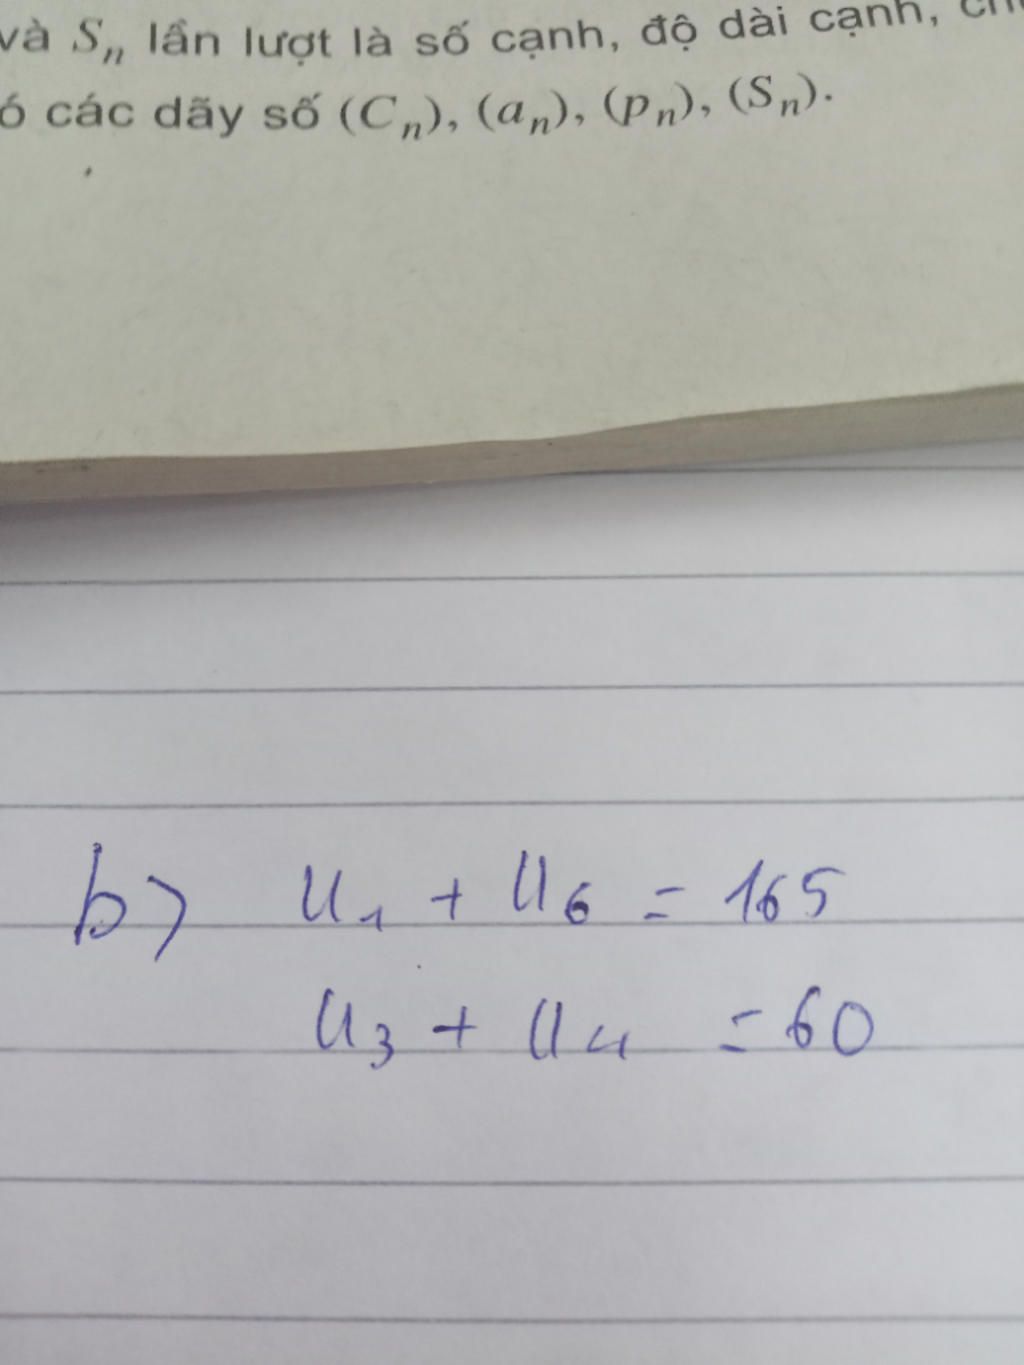 và Sₙ lần lượt là số cạnh, độ dài cạnh,
các dãy số (Cₙ), (aₙ), (pₙ), (Sₙ).
b) U₁ + U₆ = 165
U₃ + U₄ = 60